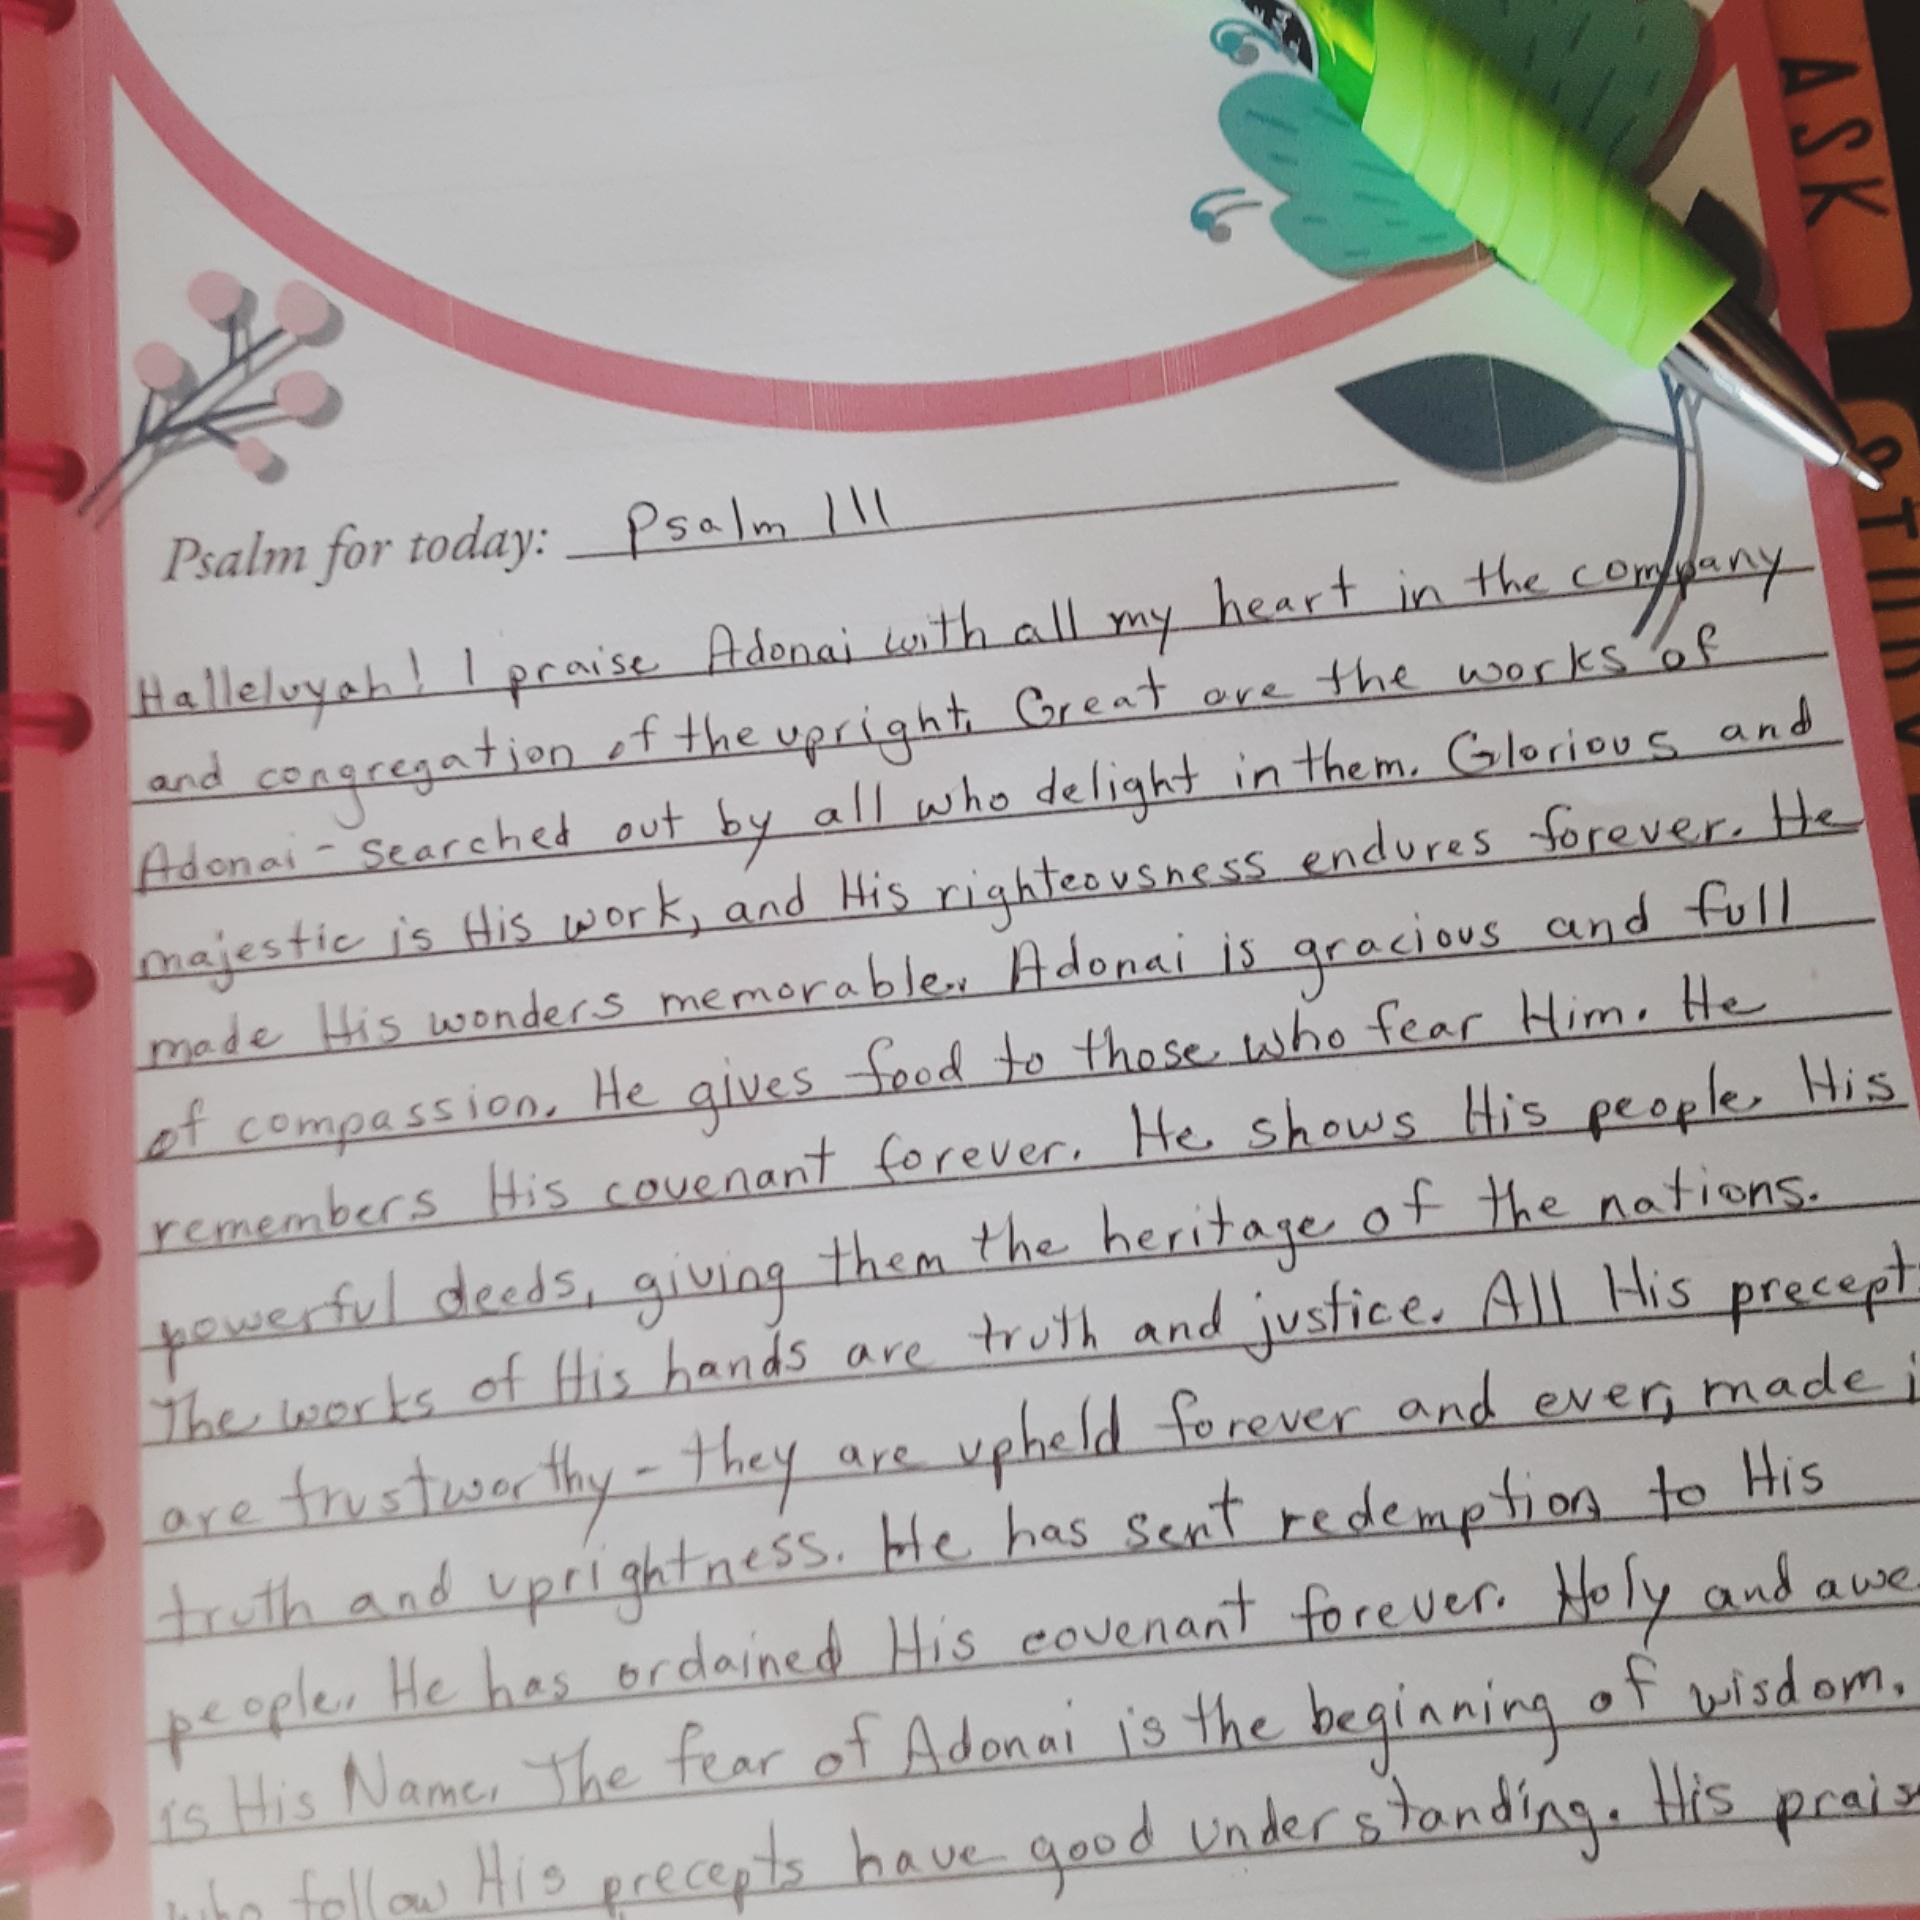 ASK
STUDY
Psalm for today: Psalm 111
Halleluyah! I praise Adonai with all my heart in the company
and congregation of the upright. Great are the works of
Adonai - searched out by all who delight in them. Glorious and
majestic is His work, and His righteousness endures forever. He
made His wonders memorable. Adonai is gracious and full
of compassion. He gives food to those who fear Him. He
remembers His covenant forever. He shows His people His
powerful deeds, giving them the heritage of the nations.
The works of His hands are truth and justice. All His precept
are trustworthy - they are upheld forever and ever, made i
truth and uprightness. He has sent redemption to His
people. He has ordained His covenant forever. Holy and awe
is His Name. The fear of Adonai is the beginning of wisdom.
who follow His precepts have good understanding. His prais